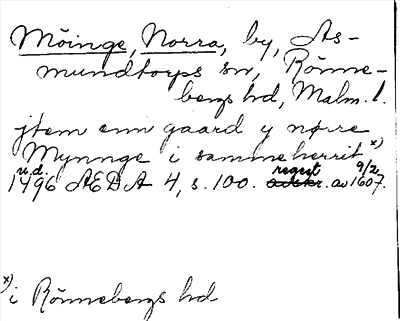 Möinge, Norra, by, As-
mundtorps sn, Rönne-
bergs hd, Malm. l.
jtem enn gaard y nørre
Mynnge i sammeherrit x)
u.d. regest 9/2
1496 AEDA 4, s. 100. avskr. av 1607.
x) i Rönnebergs hd